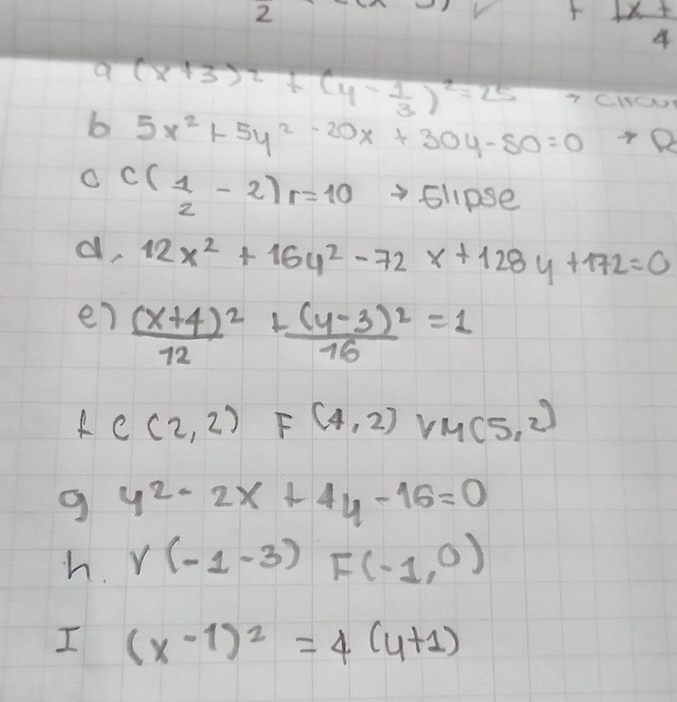 2
4
a (x+3)² + (y - 1/3)² = 25 →
b 5x² + 5y² - 20x + 30y - 80 = 0 →
c C( 1/2 - 2) r=10 → Elipse
d. 12x² + 16y² - 72 x + 128 y + 172 = 0
e) (x+4)²/12 + (y-3)²/16 = 1
f C (2,2) F (4,2) VM(5,2)
g y² - 2x + 4y - 16 = 0
h. V (-1-3) F(-1,0)
I (x-1)² = 4 (y+1)